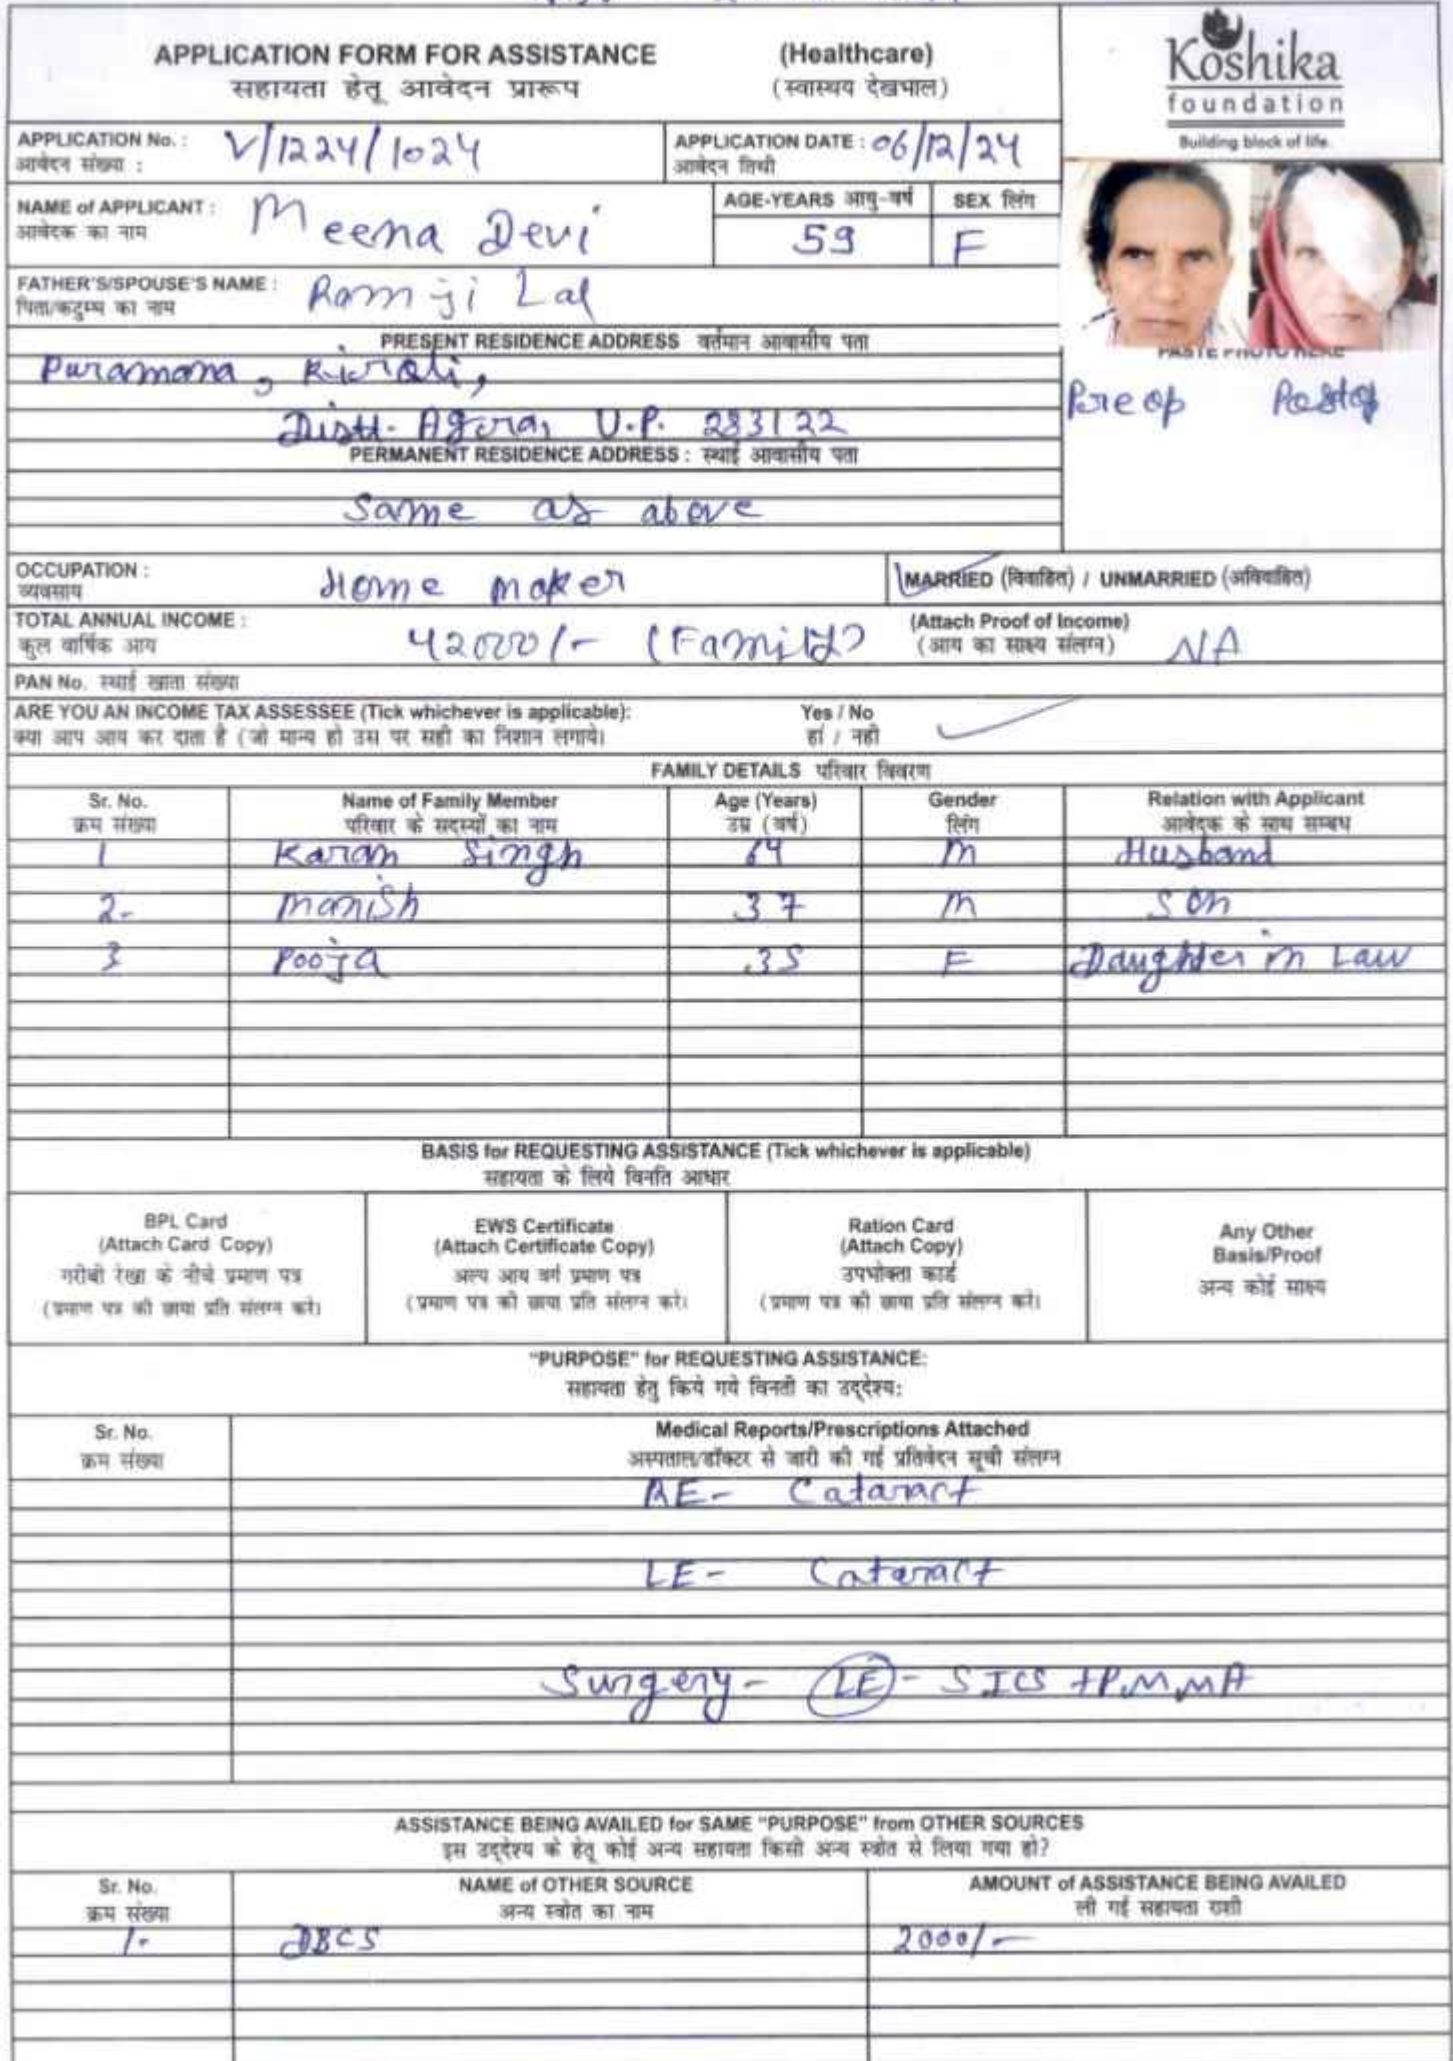 APPLICATION FORM FOR ASSISTANCE (Healthcare)
सहायता हेतू आवेदन प्रारूप (स्वास्थय देखभाल)
Koshika
foundation
Building block of life.
APPLICATION No. : V/1224/1024 APPLICATION DATE : 06/12/24
आवेदन संख्या : आवेदन तिथी
NAME of APPLICANT : Meena Devi AGE-YEARS आयु-वर्ष 59 SEX लिंग F
आवेदक का नाम
FATHER'S/SPOUSE'S NAME : Ramji Lal
पिता/कटुम्ब का नाम
PASTE PHOTO HERE
Preop Postop
PRESENT RESIDENCE ADDRESS वर्तमान आवासीय पता
Puramana, Kirali,
Distt. Agra, U.P. 283122
PERMANENT RESIDENCE ADDRESS : स्थाई आवासीय पता
Same as above
OCCUPATION : Home maker MARRIED (विवाहित) / UNMARRIED (अविवाहित)
व्यवसाय
TOTAL ANNUAL INCOME : 42000/- (Family) (Attach Proof of Income) NA
कुल वार्षिक आय (आय का साक्ष्य संलग्न)
PAN No. स्थाई खाता संख्या
ARE YOU AN INCOME TAX ASSESSEE (Tick whichever is applicable): Yes / No
क्या आप आय कर दाता है (जो मान्य हो उस पर सही का निशान लगाये। हां / नही
FAMILY DETAILS परिवार विवरण
Sr. No. Name of Family Member Age (Years) Gender Relation with Applicant
क्रम संख्या परिवार के सदस्यों का नाम उम्र (वर्ष) लिंग आवेदक के साथ सम्बध
1 Karan Singh 64 M Husband
2- Manish 37 M Son
3 Pooja 35 F Daughter in Law
BASIS for REQUESTING ASSISTANCE (Tick whichever is applicable)
सहायता के लिये विनति आधार
BPL Card
(Attach Card Copy)
गरीबी रेखा के नीचे प्रमाण पत्र
(प्रमाण पत्र की छाया प्रति संलग्न करे।
EWS Certificate
(Attach Certificate Copy)
अल्प आय वर्ग प्रमाण पत्र
(प्रमाण पत्र की छाया प्रति संलग्न करे।
Ration Card
(Attach Copy)
उपभोक्ता कार्ड
(प्रमाण पत्र की छाया प्रति संलग्न करे।
Any Other
Basis/Proof
अन्य कोई साक्ष्य
"PURPOSE" for REQUESTING ASSISTANCE:
सहायता हेतु किये गये विनती का उद्देश्य:
Sr. No. Medical Reports/Prescriptions Attached
क्रम संख्या अस्पताल/डॉक्टर से जारी की गई प्रतिवेदन सूची संलग्न
RE- Cataract
LE- Cataract
Surgery- LE- SICS +PMMA
ASSISTANCE BEING AVAILED for SAME "PURPOSE" from OTHER SOURCES
इस उद्देश्य के हेतू कोई अन्य सहायता किसी अन्य स्त्रोत से लिया गया हो?
Sr. No. NAME of OTHER SOURCE AMOUNT of ASSISTANCE BEING AVAILED
क्रम संख्या अन्य स्त्रोत का नाम ली गई सहायता राशी
1- DBCS 2000/-